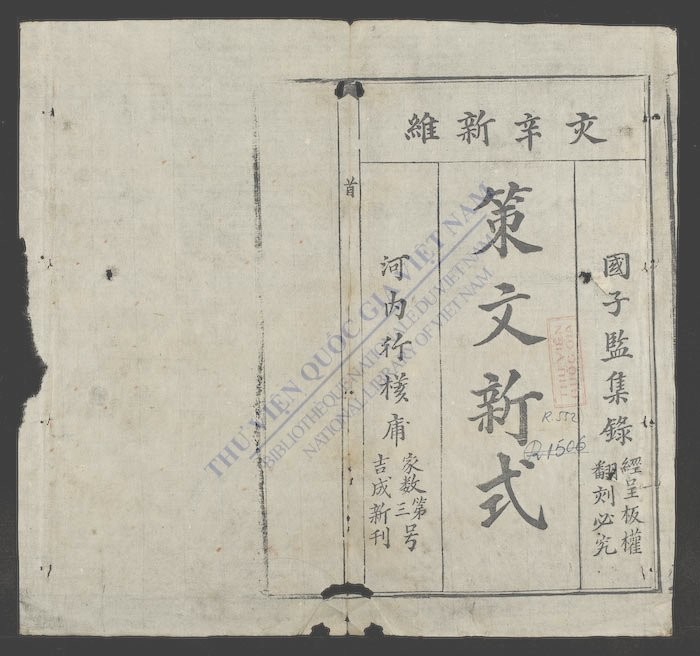 維新辛亥
國子監集錄
經呈板權
翻刻必究
策文新式
河内行庯
家数第三号
吉成新刊
首
THƯ VIỆN QUỐC GIA VIỆT NAM
BIBLIOTHÈQUE NATIONALE DU VIETNAM
NATIONAL LIBRARY OF VIETNAM
THƯ VIỆN
QUỐC GIA
R.552
1506